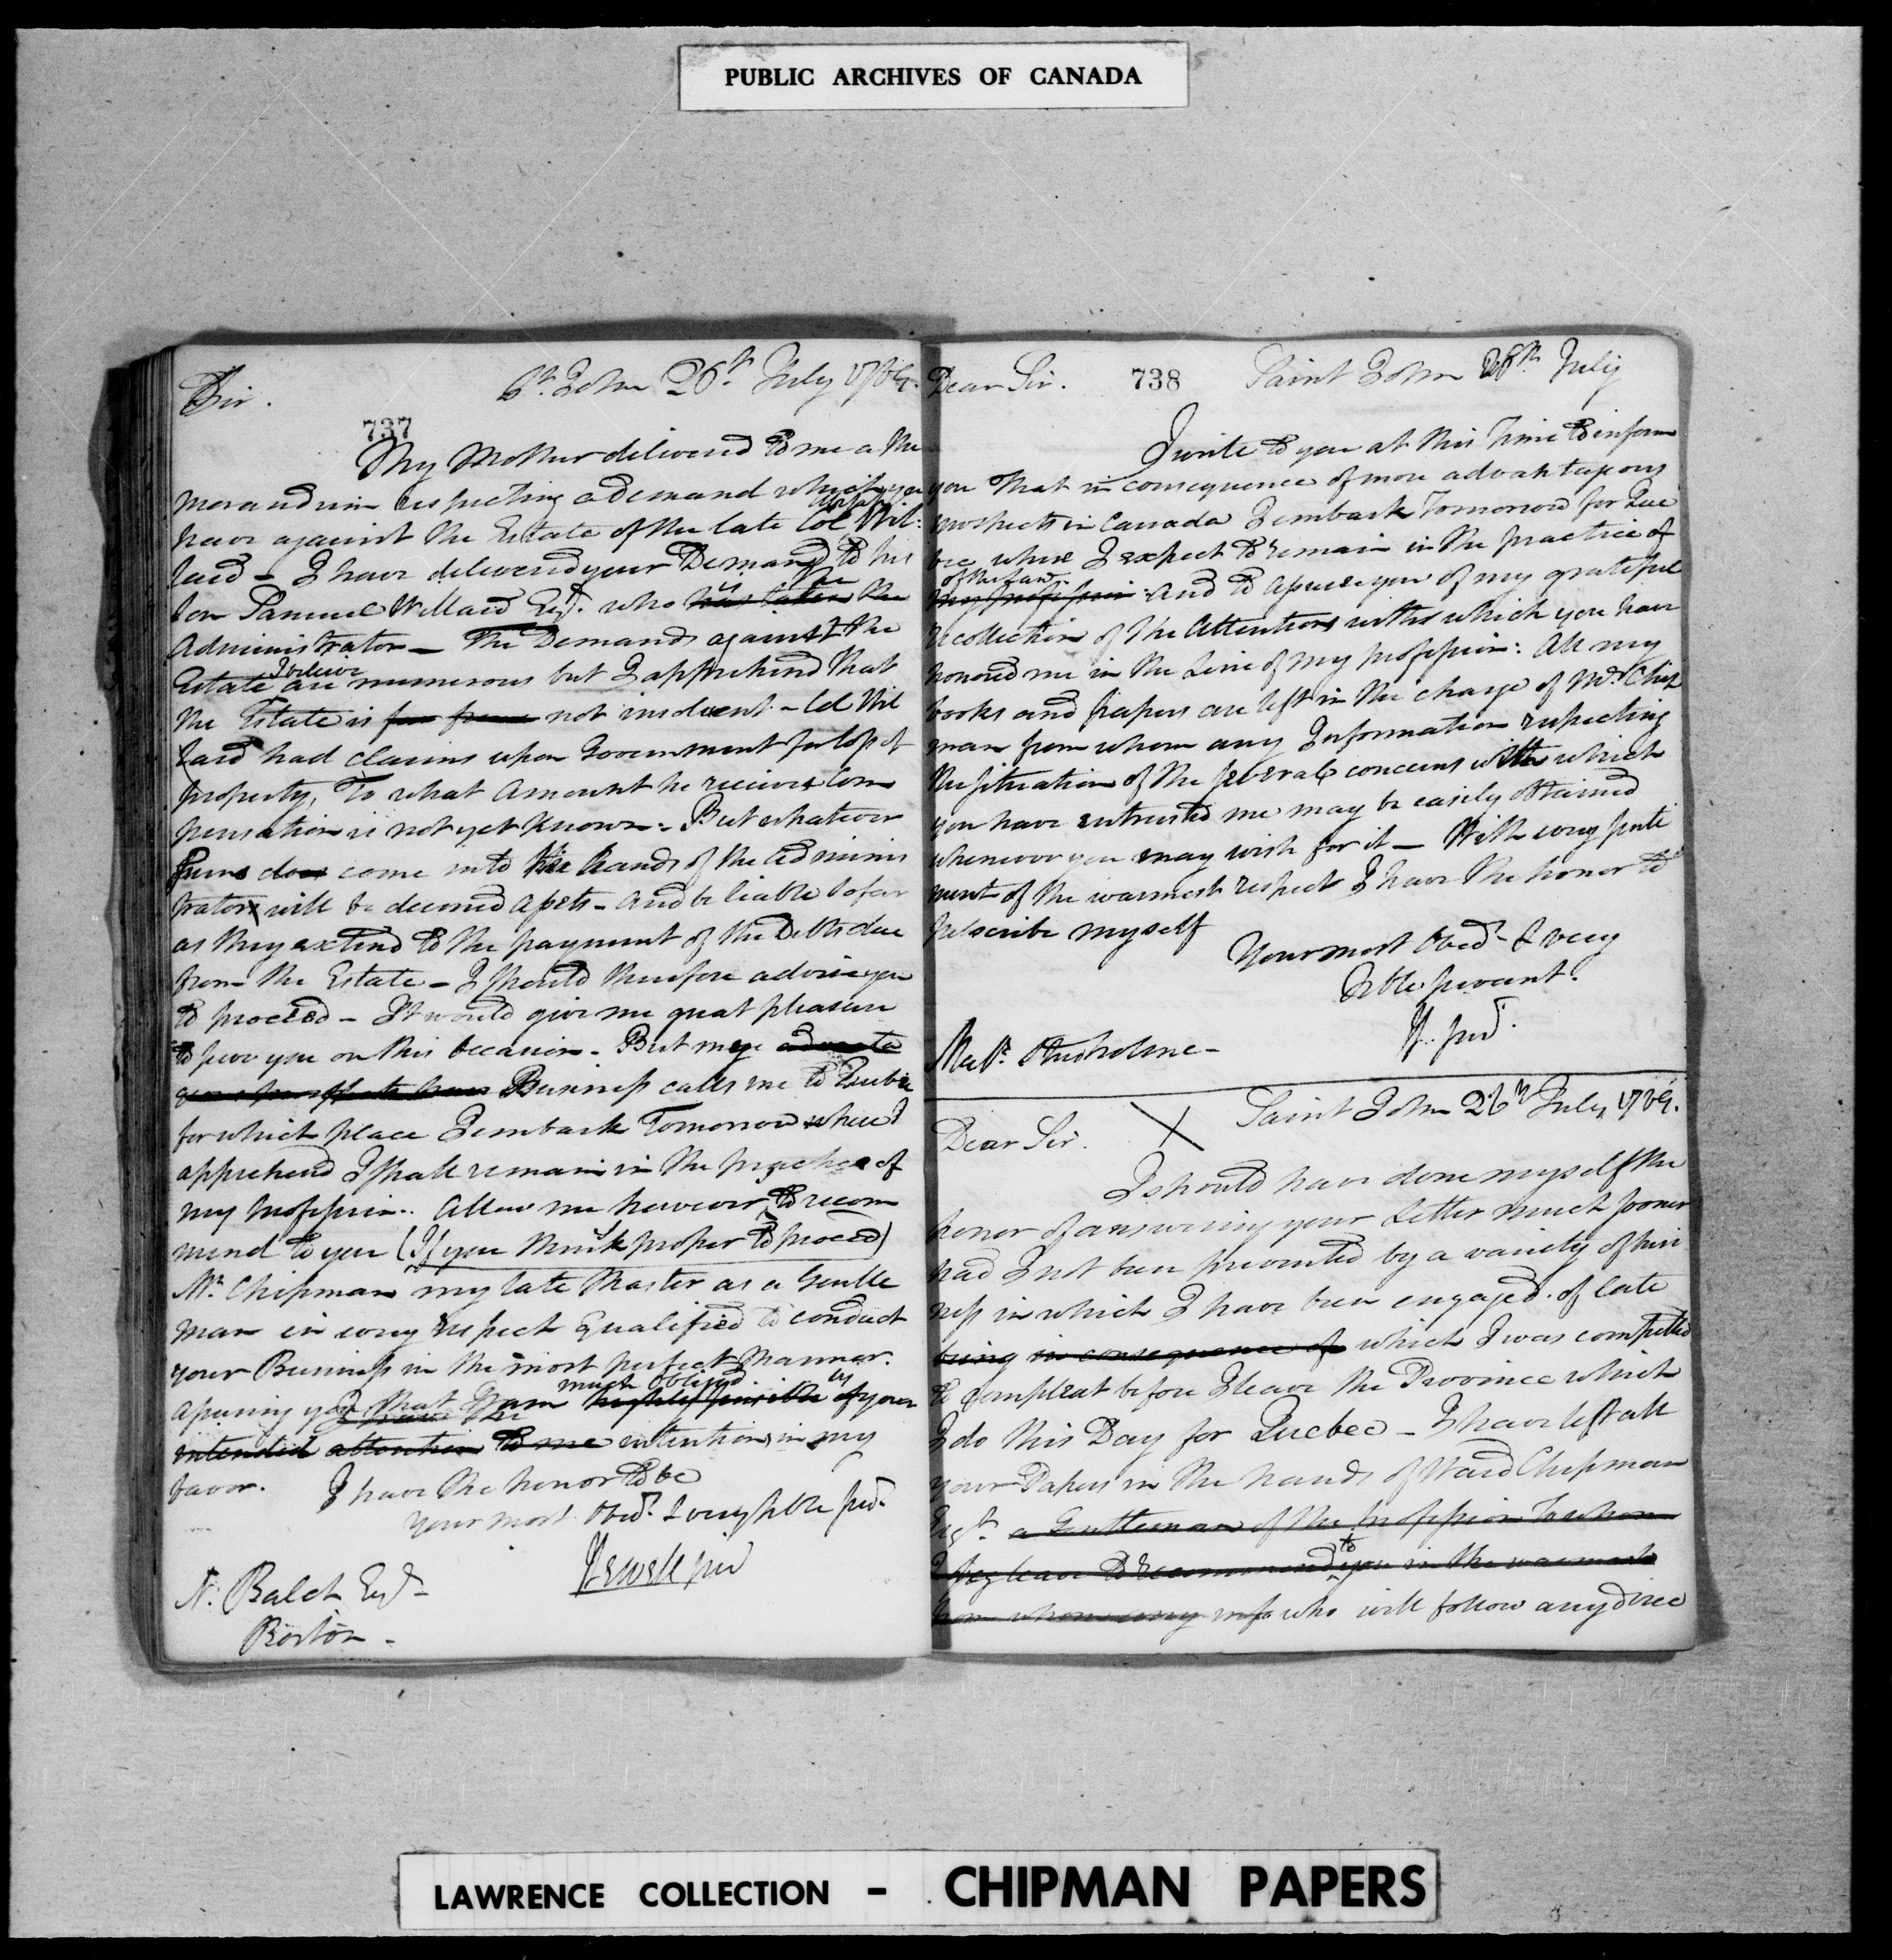 PUBLIC ARCHIVES OF CANADA
Sir.
St. John 26th July 1789.
737
My Mother delivered to me a Me
morandum respecting a Demand which you
have against the Estate of the late Col Wil:
lard - I have delivered your Demand to his
Son Samuel Willard Esqr. who is the
has taken the
Administrator - The Demands against the
I believe
Estate are numerous but I apprehend that
the Estate is far from not insolvent - Col Wil
lard had claims upon Government for loss of
property, To what Amount he receives Com
pensation is not yet known - But whatever
Sums does come into the hands of the Adminis
trator will be deemed assets - and be liable so far
as they extend to the payment of the Debts due
from the Estate - I should therefore advise you
to proceed - It would give me great pleasure
to serve you on this Occasion - But my
Business calls me to Quebec
for which place I embark Tomorrow where I
apprehend I shall remain in the practice of
my profession. Allow me however to recom
mend to you (If you think proper to proceed)
Mr. Chipman my late Master as a Gentle
man in every respect Qualified to conduct
your Business in the most perfect Manner.
much obliged by
Assuring you that I am highly sensible of your
intended attention to me intentions in my
favor.
I have the honor to be
your most Obed. & very hble servt.
J Sewell jun
N: Balch Esqr
Boston -
Dear Sir.
738
Saint John 26th July
I write to you at this Time to inform
you that in consequence of more advantageous
prospects in Canada I embark Tomorrow for Que
bec where I expect to remain in the practice of
of the Law.
my profession. And to assure you of my grateful
recollection of the Attentions with which you have
honored me in the Line of my profession: All my
books and papers are left in the charge of Mr. Chip
man from whom any Information respecting
the situation of the several concerns with which
you have entrusted me may be easily obtained
whenever you may wish for it - With every senti
ment of the warmest respect I have the honor to
subscribe myself
Your most Obed. & very
Hble servant.
J. S. jun.
Majr. Studholme -
Saint John 26th July 1789.
Dear Sir.
I should have done myself the
honor of answering your Letter much sooner
had I not been prevented by a variety of busi
ness in which I have been engaged of late
being in consequence of which I was compelled
to compleat before I leave the Province which
I do this Day for Quebec - I have left all
your Papers in the hands of Ward Chipman
Esqr. a Gentleman of the profession to whom
I beg leave to recommend to you in the warmest
from whom every info who will follow any direc
LAWRENCE COLLECTION - CHIPMAN PAPERS